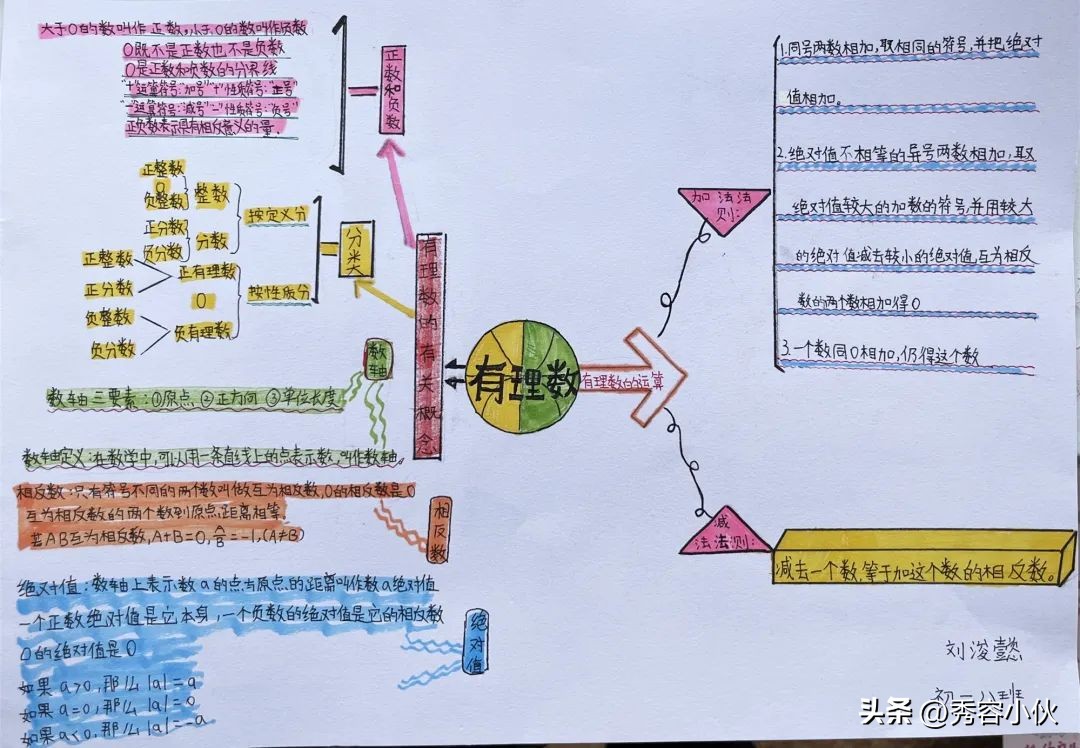 大于0的数叫作正数,小于0的数叫作负数
0既不是正数也不是负数
0是正数和负数的分界线
"+"运算符号:"加号" "+"性质符号:"正号"
"-"运算符号:"减号" "-"性质符号:"负号"
正负数表示具有相反意义的量.
正数和负数
正整数
0
负整数
整数
正分数
负分数
分数
按定义分
正整数
正分数
正有理数
0
负整数
负分数
负有理数
按性质分
分类
有理数的有关概念
数轴
数轴三要素:①原点 ②正方向 ③单位长度
数轴定义:在数学中,可以用一条直线上的点表示数,叫作数轴。
相反数:只有符号不同的两个数叫做互为相反数,0的相反数是0
互为相反数的两个数到原点距离相等
若AB互为相反数,A+B=0,A/B=-1,(A≠B)
相反数
绝对值:数轴上表示数a的点与原点的距离叫作数a绝对值
一个正数绝对值是它本身,一个负数的绝对值是它的相反数
0的绝对值是0
如果a>0,那么|a|=a
如果a=0,那么|a|=0
如果a<0,那么|a|=-a
绝对值
有理数
有理数的运算
加法法则:
1.同号两数相加,取相同的符号,并把绝对
值相加。
2.绝对值不相等的异号两数相加,取
绝对值较大的加数的符号,并用较大
的绝对值减去较小的绝对值,互为相反
数的两个数相加得0
3.一个数同0相加,仍得这个数
减法法则:
减去一个数,等于加这个数的相反数。
刘浚懿
初一八班
头条 @秀容小伙